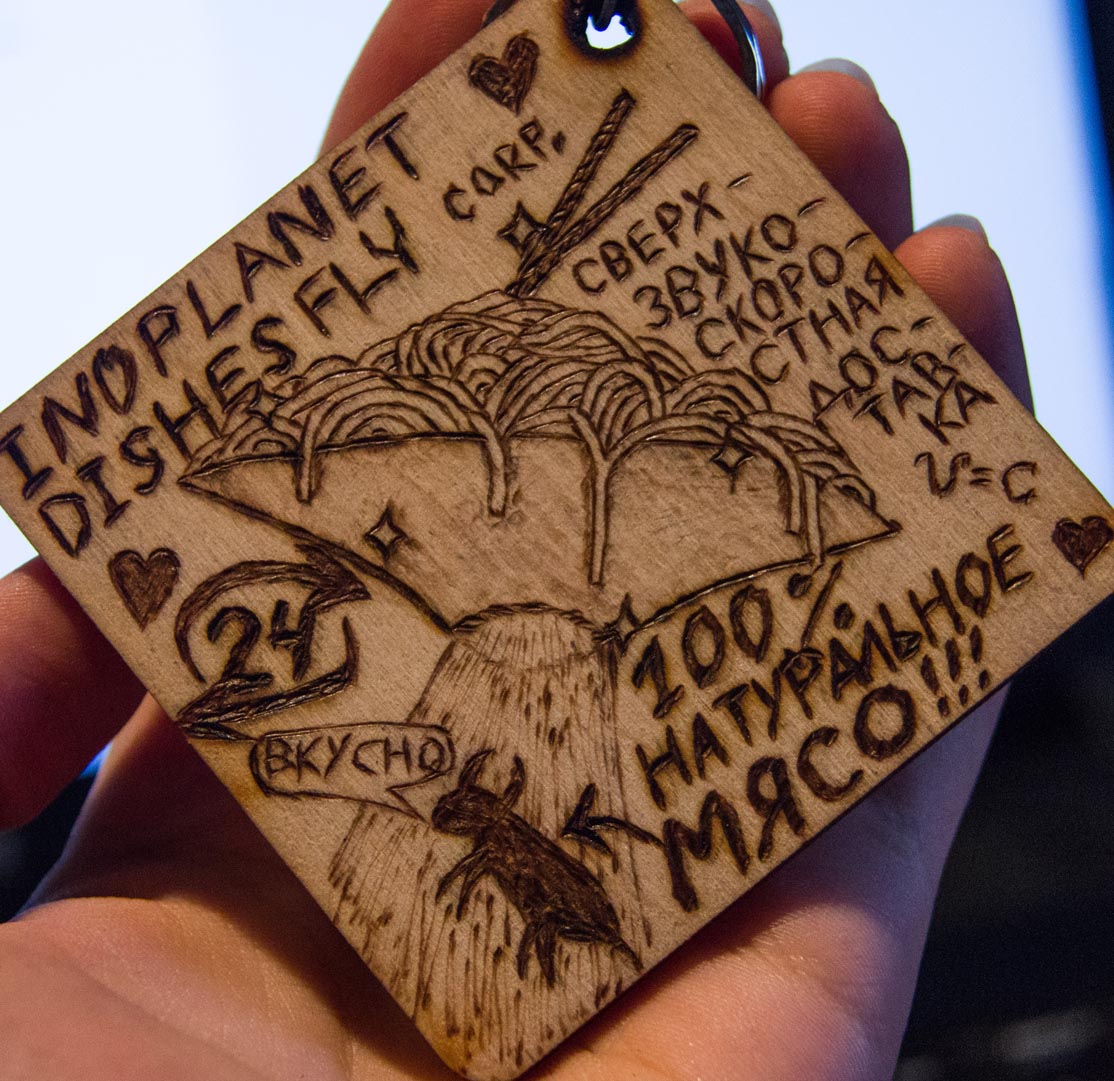 INOPLANET
DISHES FLY
CORP.
СВЕРХ-
ЗВУКО-
СКОРО-
СТНАЯ
ДОС-
ТАВ-
КА
v=c
24
100%
НАТУРАЛЬНОЕ
МЯСО!!!
ВКУСНО